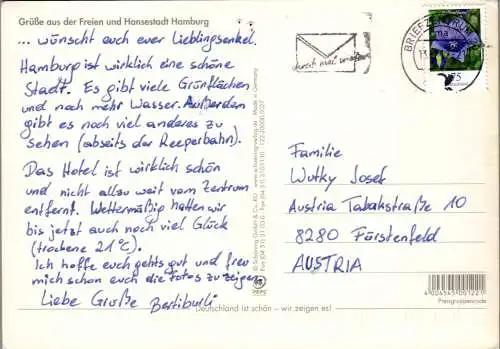 Grüße aus der Freien und Hansestadt Hamburg
... wünscht euch euer Lieblingsenkel.
Hamburg ist wirklich eine schöne
Stadt. Es gibt viele Grünflächen
und noch mehr Wasser. Außerdem
gibt es noch viel anderes zu
sehen (abseits der Reeperbahn).
Das Hotel ist wirklich schön
und nicht allzu weit vom Zentrum
entfernt. Wettermäßig hatten wir
bis jetzt auch noch viel Glück
(trockene 21°C).
Ich hoffe euch gehts gut und freu
mich schon euch die Fotos zu zeigen
Liebe Grüße
Deutschland ist schön – wir zeigen es!
© Schöning GmbH & Co. KG
Made in Germany
BRIEFZENTRUM
Familie
Wutky Josef
Austria Tabakstraße 10
8280 Fürstenfeld
AUSTRIA
4 004545 001221
Preisgruppencode